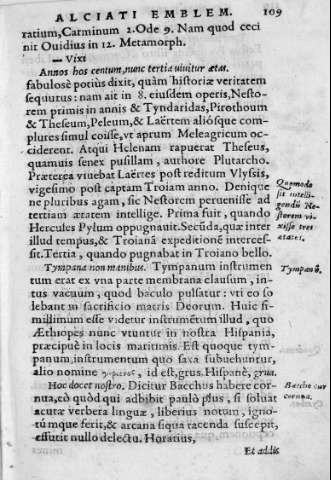 ALCIATI EMBLEM. 109
ratium, Carminum 2. Ode 9. Nam quod ceci
nit Ouidius in 12. Metamorph.
— Vixi
Annos his centum, nunc tertia viuitur ætas.
fabulosè potiùs dixit, quàm historiæ veritatem
sequutus: nam ait in 8. eiusdem operis, Nesto-
rem primis in annis & Tyndaridas, Pirothoum
& Theseum, Peleum, & Laërtem aliósque com-
plures simul coisse, vt aprum Meleagricum oc-
ciderent. Atqui Helenam rapuerat Theseus,
quamuis senex pusillam, authore Plutarcho.
Præterea viuebat Laërtes post reditum Vlysis,
vigesimo post captam Troiam anno. Denique
ne pluribus agam, sic Nestorem peruenisse ad
tertiam ætatem intellige. Prima fuit, quando
Hercules Pylum oppugnauit. Secūda, quæ inter
illud tempus, & Troianā expeditionē interces-
sit. Tertia, quando pugnabat in Troiano bello.
Quomodo
sit intelli-
gendū Ne-
storem vi-
xisse tres
ætates.
Tympana non manibus. Tympanum instrumen
tum erat ex vna parte membrana clausum, in-
tus vacuum, quod baculo pulsatur: vti eo so
lebant in sacrificio matris Deorum. Huic si-
millimum esse videtur instrumētum illud, quo
Æthiopes nunc vtuntur in nostra Hispania,
præcipuè in locis maritimis. Est quoque tym-
panum, instrumentum quo saxa subuehuntur,
alio nomine γέρανος, id est, grus. Hispanè, grua.
Tympanū.
Hoc docet nostro. Dicitur Bacchus habere cor-
nua, eò quòd qui adhibit paulò plus, si soluat
acutæ verbera linguæ, liberius notam, igno-
túmque ferit, & arcana siqua tacenda suscepit,
effutit nullo delectu. Horatius,
Bacche cur
cornua.
Et addis